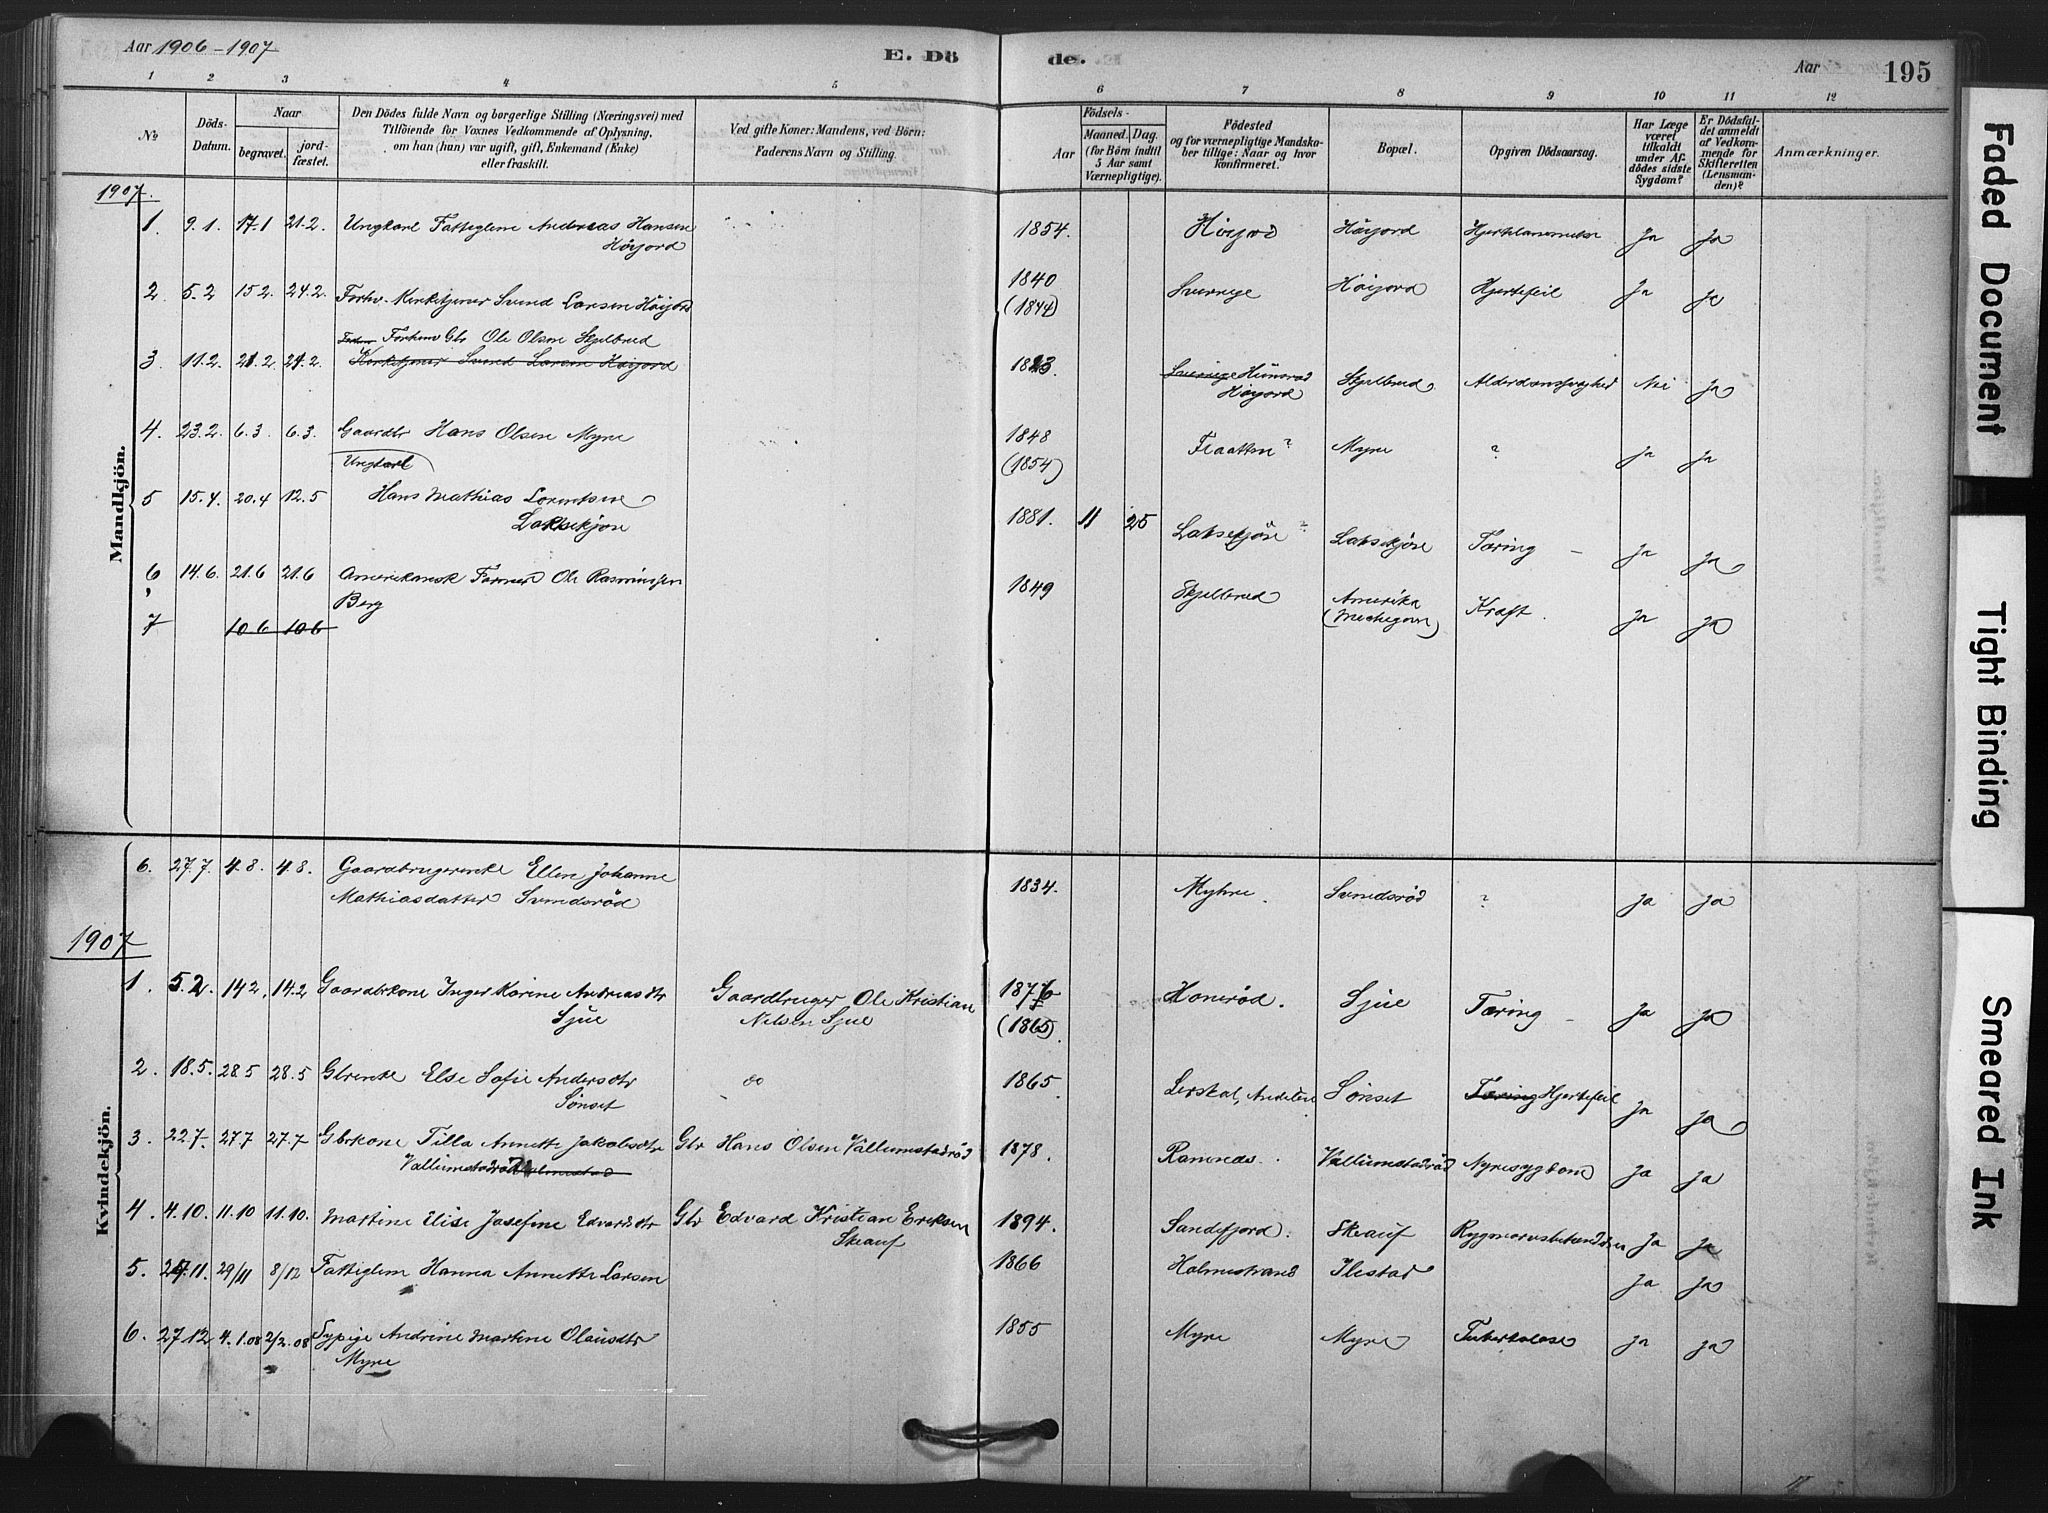 Aar 1906-1907
E. Dö
de.
Aar
195
1 2 3 4 5 6 7 8 9 10 11 12
No
Döds-Datum.
Naar
begravet.
jord-fæstet.
Den Dödes fulde Navn og borgerlige Stilling (Næringsvei) med
Tilföiende for Voxnes Vedkommende af Oplysning,
om han (hun) var ugift, gift, Enkemand (Enke)
eller fraskilt.
Ved gifte Koner: Mandens, ved Börn:
Faderens Navn og Stilling.
Födsels-
Aar
Maaned. Dag.
(for Börn indtil
5 Aar samt
Værnepligtige).
Födested
og for værnepligtige Mandska-
ber tillige: Naar og hvor
konfirmeret.
Bopæl.
Opgiven Dödsaarsag.
Har Læge
været
tilkaldt
under Af-
dödes sidste
Sygdom?
Er Dödsfal-
det anmeldt
af Vedkom-
mende for
Skifteretten
(Lensman-
den)?
Anmærkninger.
Mandkjön.
1907.
1. 9.1. 17.1 21.2. Ungkarl Fattiglem Andreas Hansen 1854. Höijord Höijord Hjertelammelse Ja Ja
Höijord
2. 5.2 15.2. 24.2. Forhv. Kirketjener Svend Larsen Höijord 1840 Sverrige Höijord Hjertefeil Ja Ja
(1844)
Forhenv Gbr Ole Olsen Skjelbred
3. 11.2. 21.2. 21.2. Kirketjener Svend Larsen Höijord 1823. Sverrige Hunsrød Skjelbred Alderdomssvaghed Nei Ja
Höijord
4. 23.2. 6.3. 6.3. Gaardbr Hans Olsen Myre 1848 Flaatten? Myre ? Ja Ja
(1854)
Ungkarl
5 15.4. 20.4 12.5 Hans Mathias Lorentsen 1881. 11 25 Laksekjön? Laksekjön Tæring - Ja Ja
Laksekjön
6 14.6. 21.6 21.6 Amerikansk Farmer Ole Rasmussen 1849 Skjelbred Amerika Kræft. Ja Ja
Berg
(Mechegorn)
7 10.6 10.6
Kvindekjön.
6. 27.7. 4.8. 4.8. Gaardbrugerenke Ellen Johanne 1834. Myhre. Svendsröd ? Ja Ja
Mathiasdatter Svendsröd
1907
1. 5.2. 14.2. 14.2 Gaardbrkone Inger Karine Andreasdtr Gaardbruger Ole Kristian 1876 Honeröd. Sjue Tæring - Ja Ja
Sjue Nilsen Sjue (1865).
2. 18.5. 28.5 28.5 Gbrenke Else Sofie Andersdtr do 1865 Lerskal, Andebu Sönset Tæring Hjertefeil Ja Ja
Sönset
3. 22.7. 27.7 27.7 Gbrkone Tilla Annette Jakobsdtr Gbr Hans Olsen Vallumstadröd 1878. Ramnes. Vallumstadröd Nyresygdom Ja Ja
Vallumstadröd
4. 4.10. 11.10 11.10. Martine Elise Josefine Edvardsdtr Gbr Edvard Kristian Eriksen 1894. Sandefjord. Skeauf Rygmarvsbetændelse Ja Ja
Skeauf
5. 24.11. 29/11 8/12 Fattiglem Hanna Annette Larsen 1866 Holmestrand Ilestad Ja Ja
6. 27.12 4.1.08 2/2.08 Sypige Andrine Martine Olausdtr 1855 Myre Myre Tuberkulose Ja Ja
Myre
Faded Document
Tight Binding
Smeared Ink